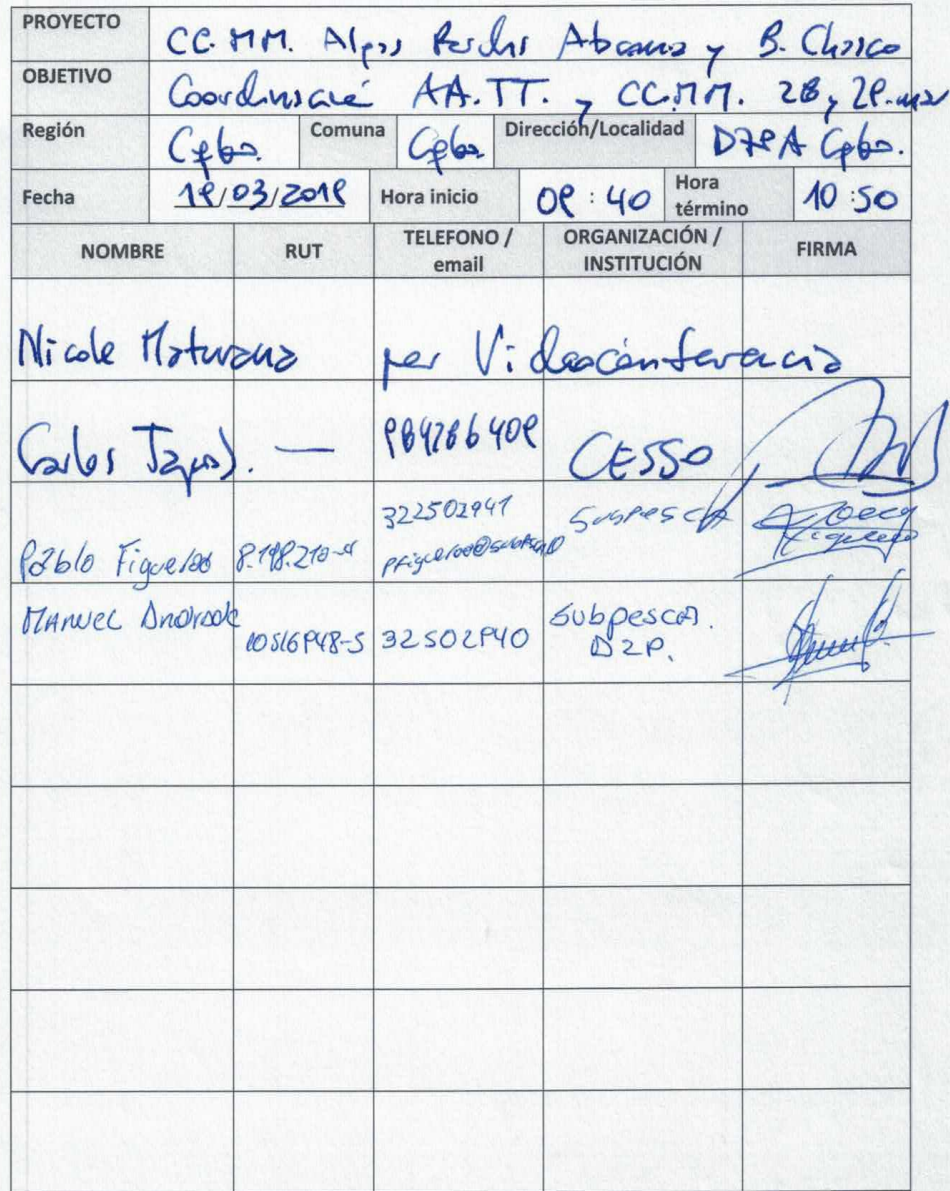 PROYECTO CC.MM. Algas Pardas Atacama y B. Chasco
OBJETIVO Coordinación AA.TT. y CC.MM. 28 y 29-mar
Región Cpbo. Comuna Cpbo. Dirección/Localidad DZPA Cpbo.
Fecha 19/03/2019 Hora inicio 09:40 Hora término 10:50
NOMBRE RUT TELEFONO / email ORGANIZACIÓN / INSTITUCIÓN FIRMA
Nicole Maturana por Videoconferencia
Carlos Tapia J. — 984286409 CESSO
322502941
Pablo Figueroa Subpesca
Manuel Andrade 10516948-5 32502940 Subpesca.
DZP.